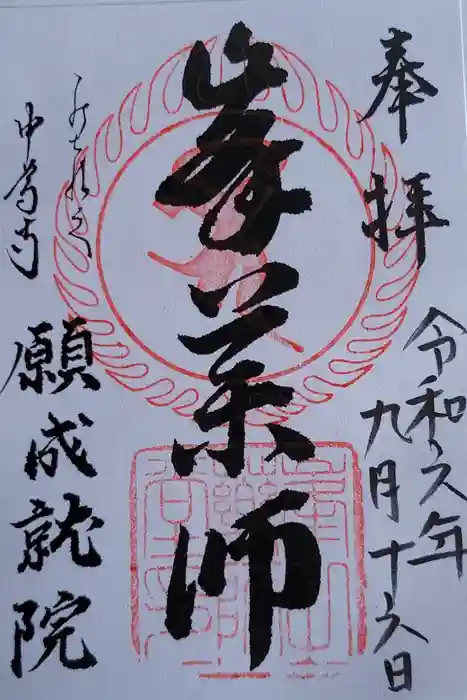 奉拝
令和六年
九月十六日
峯薬師
中尊寺
願成就院